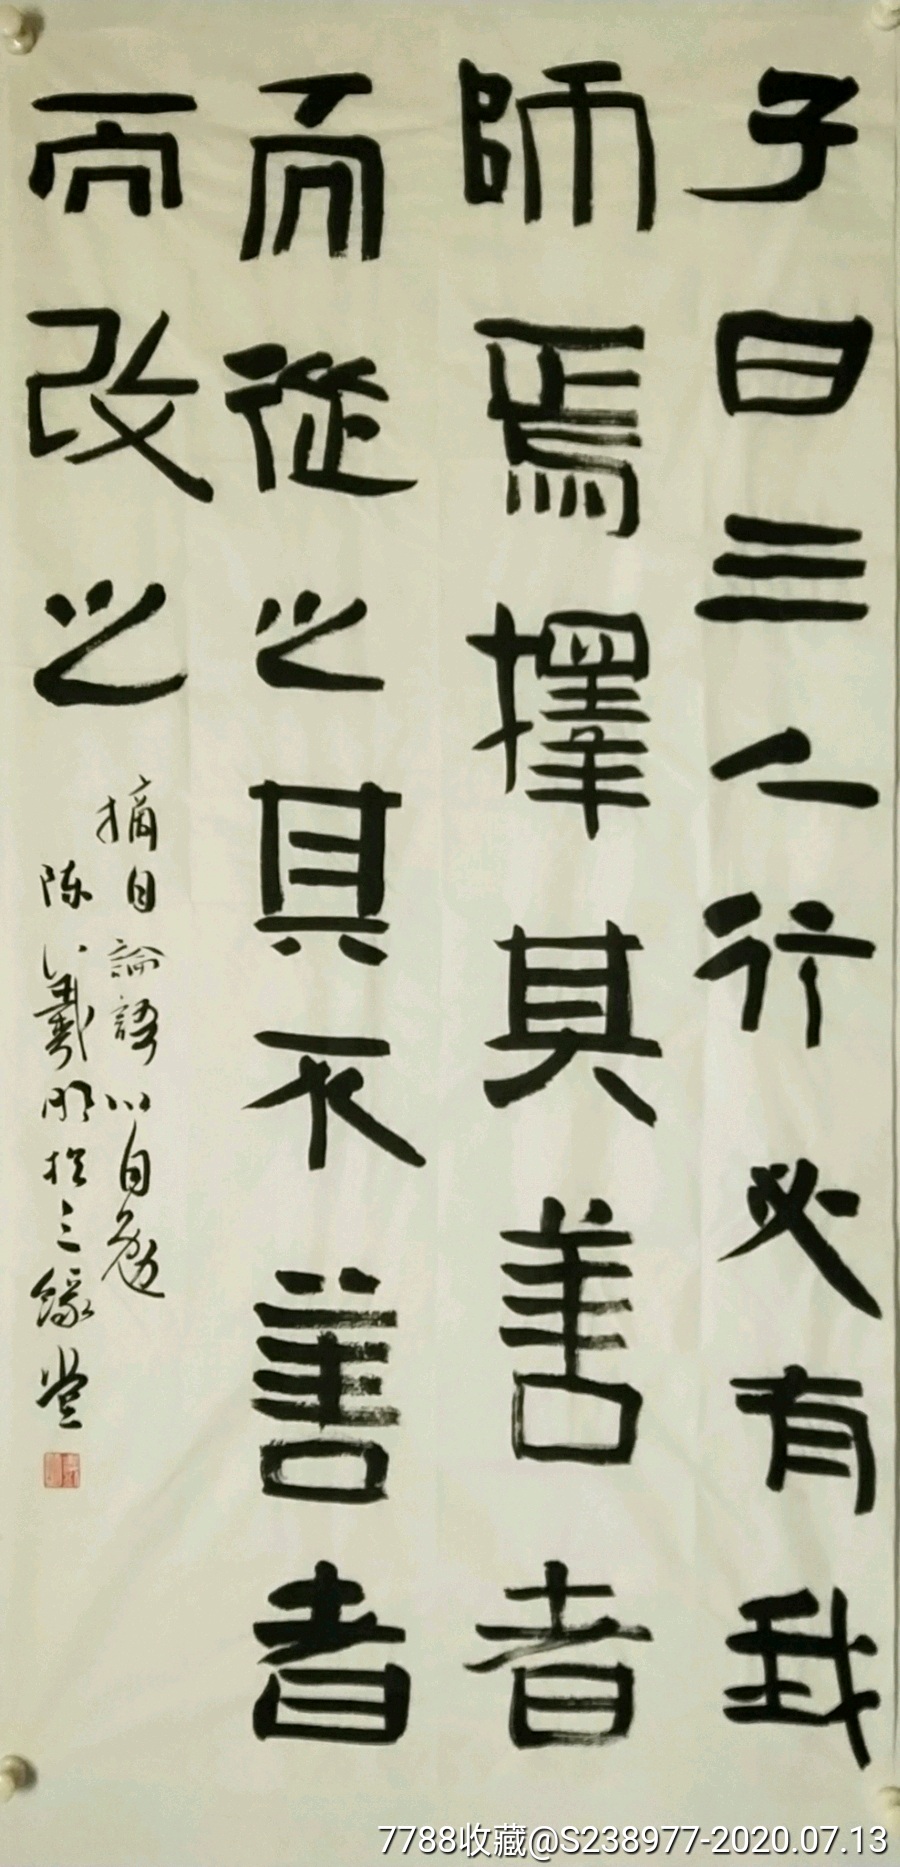 子曰三人行必有我
師焉擇其善者
而從之其不善者
而改之
摘自論語以自勉
陈羲明於三緣堂
7788收藏@S238977-2020.07.13